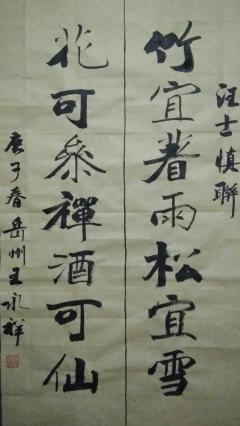 汪士慎聯
竹宜著雨松宜雪
花可參禪酒可仙
庚子春岳州王永祥